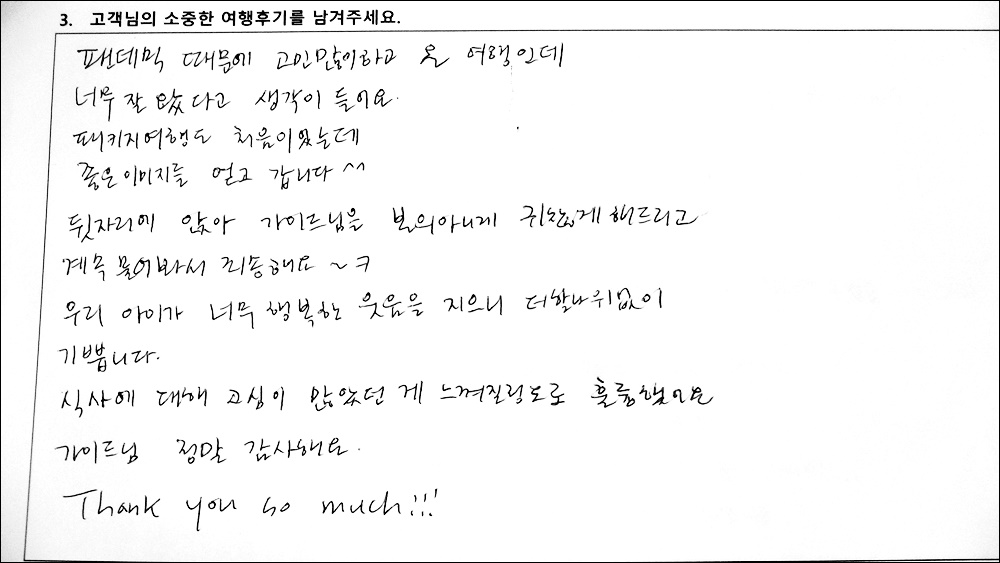 3. 고객님의 소중한 여행후기를 남겨주세요.
팬데믹 때문에 고민많이하고 온 여행인데
너무 잘 왔다고 생각이 들어요.
패키지여행도 처음이었는데
좋은이미지를 얻고 갑니다 ^^
뒷자리에 앉아 가이드님을 본의아니게 귀찮게 해드리고
계속 물어봐서 죄송해요 ~ㅋ
우리 아이가 너무 행복한 웃음을 지으니 더할나위없이
기쁩니다.
식사에 대해 고심이 많았던 게 느껴질정도로 훌륭했어요
가이드님 정말 감사해요.
Thank you so much!!!